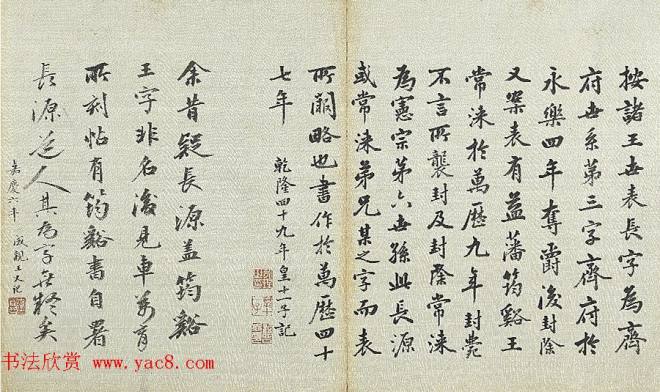 按諸王世表長字為齊
府世系第三字齊府於
永樂四年奪爵後封除
又案表有益藩筠谿王
常淶於萬歷九年封薨
不言所襲封及封除常淶
為憲宗第六世孫此長源
或常淶弟兄某之字而表
所闕略也書作於萬歷四十
七年 乾隆四十九年皇十一子記
余昔疑長源蓋筠谿
王字非名後見車萬育
所刻帖有筠谿書自署
長源道人其為字無疑矣
嘉慶六年 成親王又記
书法欣赏 www.yac8.com